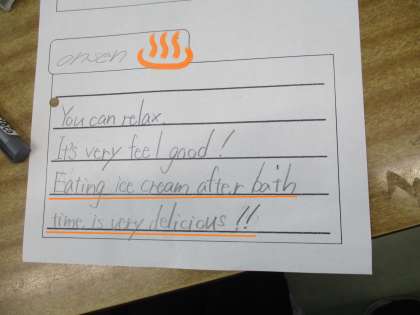 onsen
You can relax
It's very feel good!
Eating ice cream after bath
time, is very delicious!!